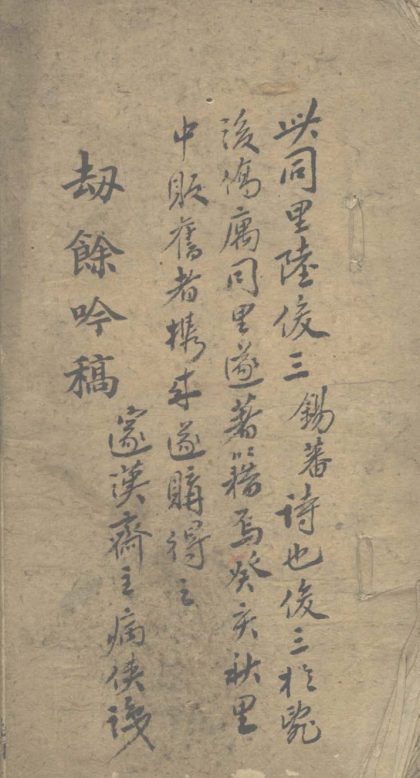 此同里陸俊三錫蕃詩也俊三於
後僑寓同里遂著以籍焉癸亥秋里
中販舊者攜來遂購得之
劫餘吟稿
邃漢齋主病俠識